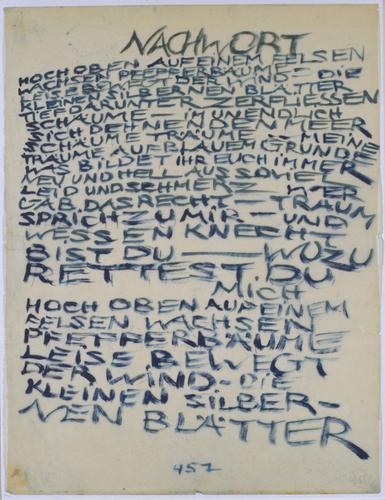 NACHWORT
HOCH OBEN AUF EINEM FELSEN
WACHSEN PFEFFERBÄUME – DIE
LEISE BEWEGT DER WIND – DIE
KLEINEN SILBERNEN BLÄTTER
TIEF DARUNTER ZERFLIESSEN
SCHÄUME – IM UNENDLICH
SICH DEHNENDEN MEER
SCHÄUME TRÄUME – MEINE
TRÄUME AUF BLAUEM GRUNDE
WAS BILDET IHR EUCH IMMER
NEU UND HELL AUS SOVIEL
LEID UND SCHMERZ – WER
GAB DAS RECHT – TRAUM
SPRICH ZU MIR – UND
WESSEN KNECHT
BIST DU — WOZU
RETTEST DU
MICH
HOCH OBEN AUF EINEM
FELSEN WACHSEN
PFEFFERBÄUME
LEISE BEWEGT
DER WIND – DIE
KLEINEN SILBER–
NEN BLÄTTER
457